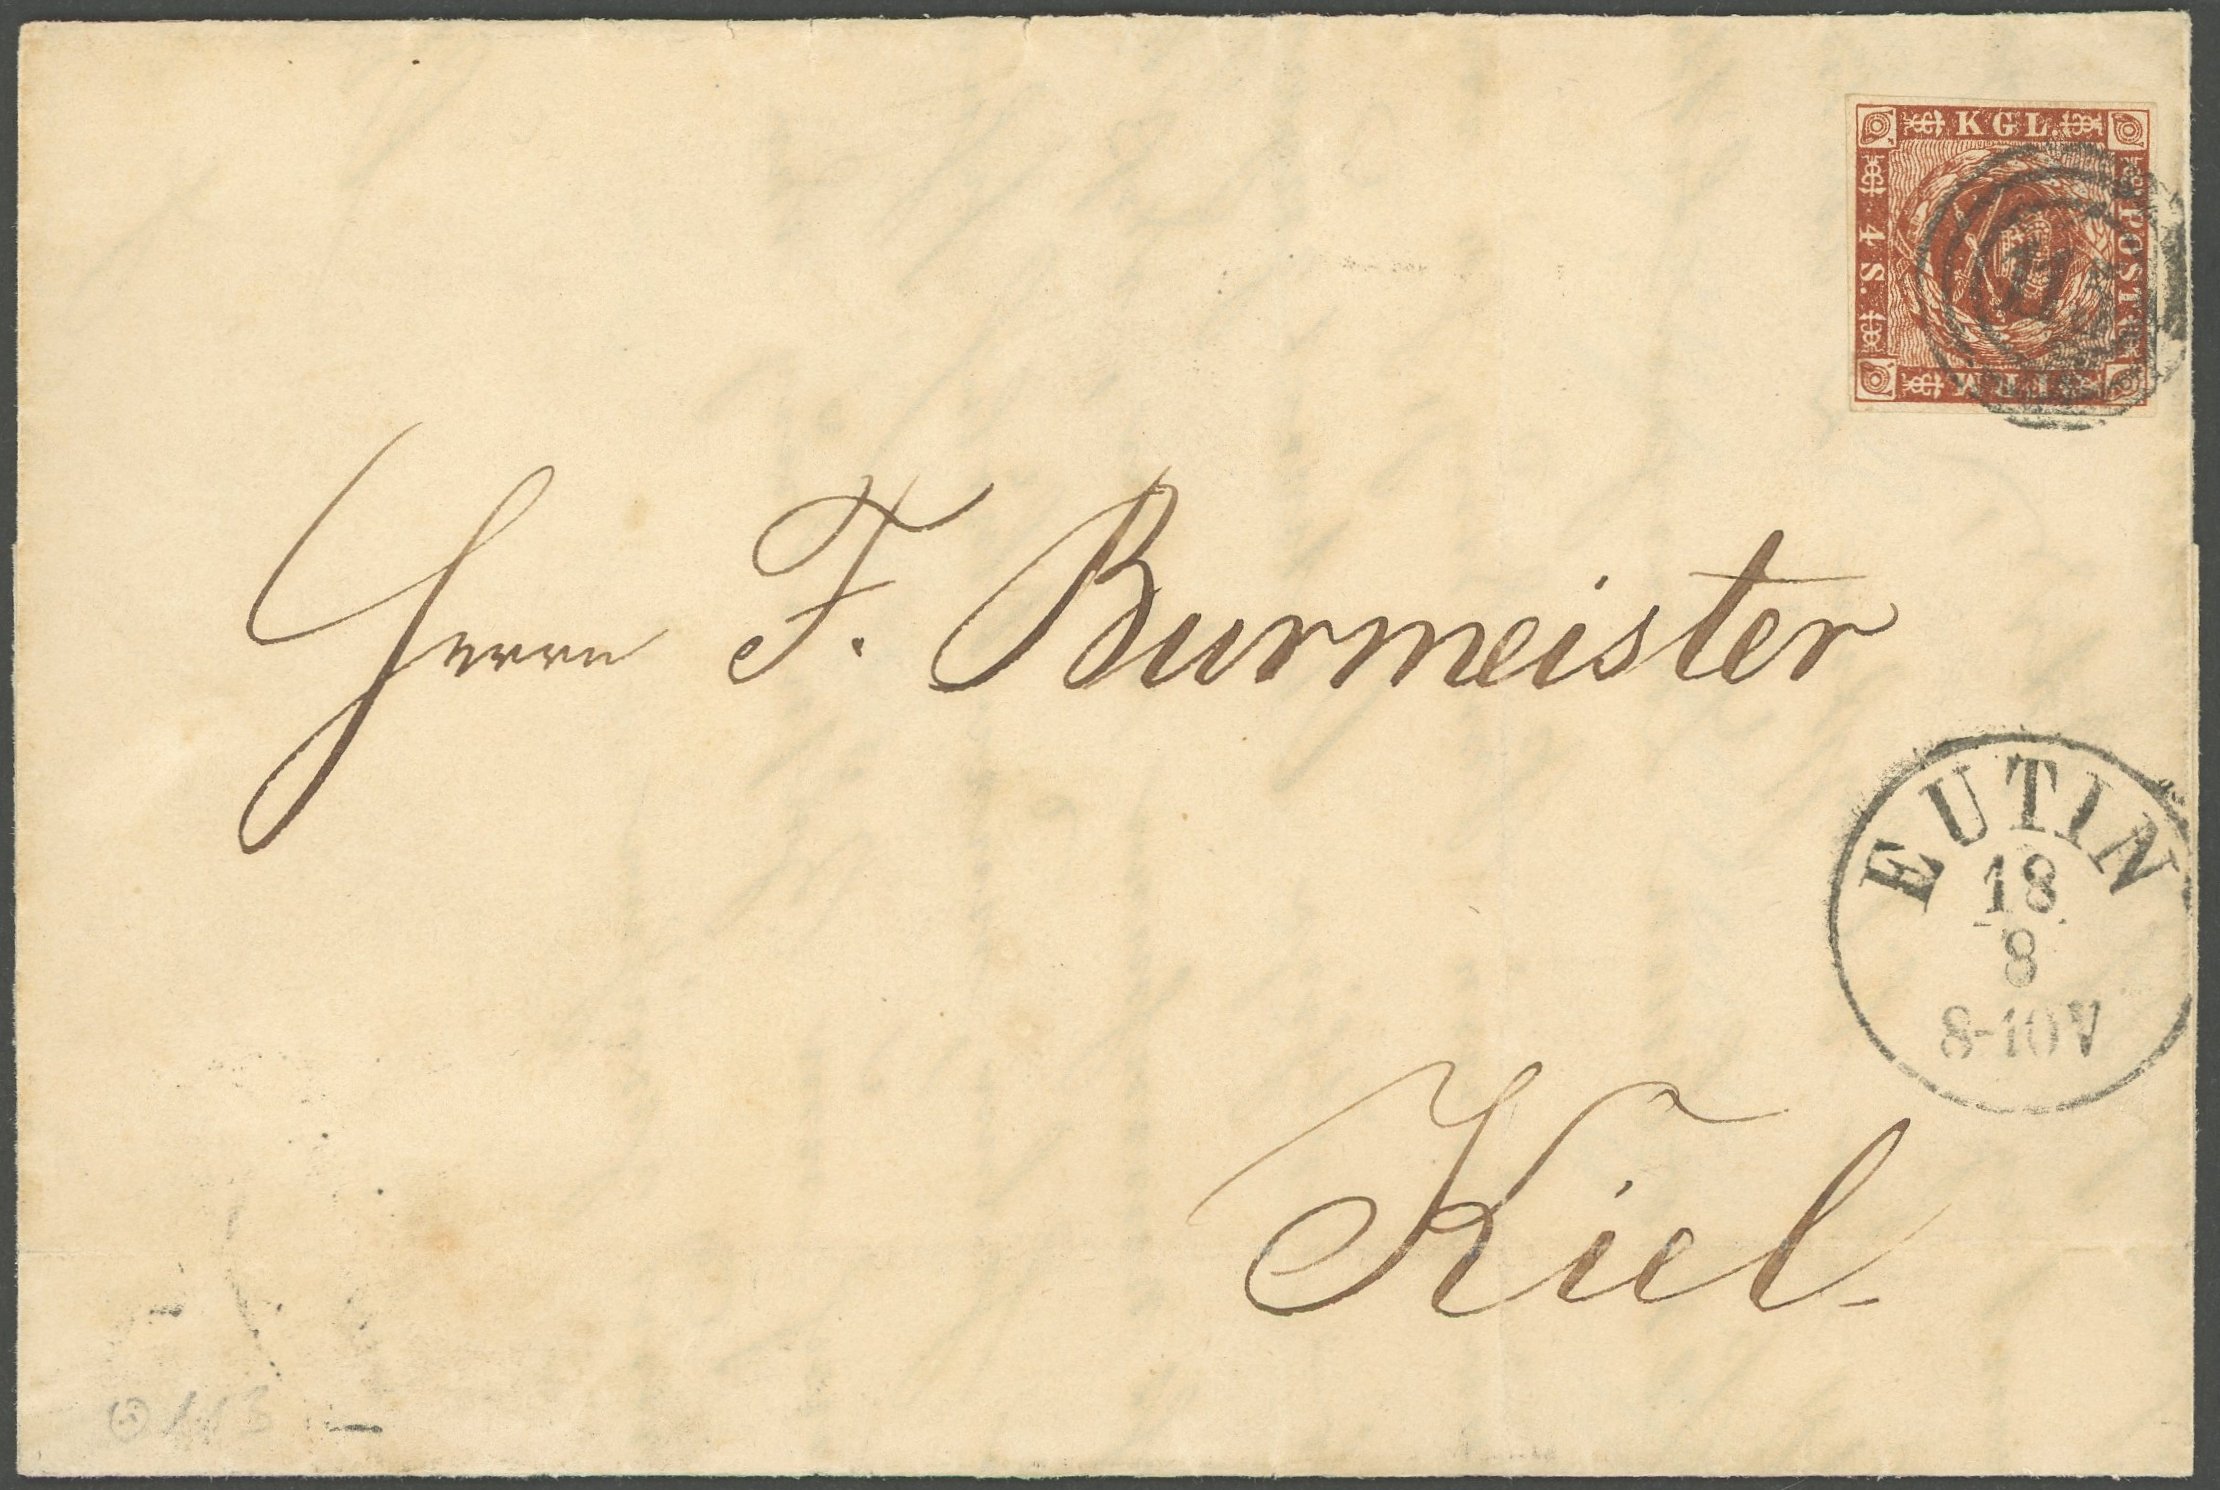 KGL
POST
FRM
4 S.
113
Herrn F. Burmeister
EUTIN
18
8
8-10V
Kiel.
113